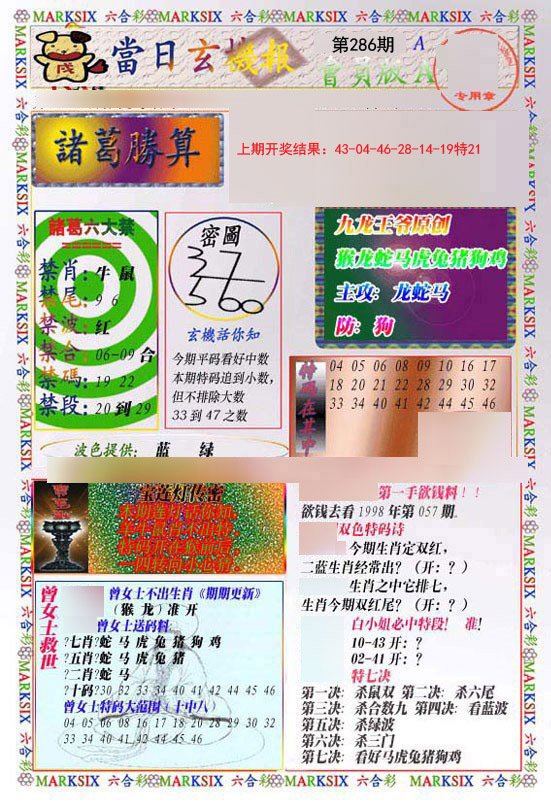 MARKSIX 六合彩 MARKSIX 六合彩 MARKSIX 六合彩 MARKSIX 六合彩
當日玄機報
第286期 A
會員版A
专用章
諸葛勝算
上期开奖结果：43-04-46-28-14-19特21
諸葛六大禁
禁肖：牛 鼠
禁尾：9 6
禁波：红
禁合：06-09合
禁碼：19 22
禁段：20到29
密圖
37
3560
玄機話你知
今期平码看好中数
本期特码追到小数，
但不排除大数
33 到 47 之数
九龙王爷原创
猴龙蛇马虎兔猪狗鸡
主攻：龙蛇马
防：狗
特码在其中
04 05 06 08 09 10 16 17
18 20 21 22 28 29 30 32
33 34 40 41 42 44 45 46
波色提供： 蓝 绿
宝莲灯传密
第一手欲钱料！！
欲钱去看 1998 年第 057 期
双色特码诗
今期生肖定双红，
二蓝生肖经常出？（开：？）
生肖之中它排七，
生肖今期双红尾？（开：？）
白小姐必中特段！ 准！
10-43 开：？
02-41 开：？
特七决
第一决：杀鼠双 第二决：杀六尾
第三决：杀合数九 第四决：看蓝波
第五决：杀绿波
第六决：杀三门
第七决：看好马虎兔猪狗鸡
曾女士救世
曾女士不出生肖《期期更新》
（猴 龙）准 开
曾女士送码料
?七肖?蛇 马 虎 兔 猪 狗 鸡
?五肖?蛇 马 虎 兔 猪
?二肖?蛇 马
?十码?30 32 33 34 40 41 42 44 45 46
曾女士特码大范围（十中八）
04 05 06 08 16 17 18 20 28 29 30 32
33 34 40 41 42 44 45 46
MARKSIX 六合彩 MARKSIX 六合彩 MARKSIX 六合彩 MARKSIX 六合彩